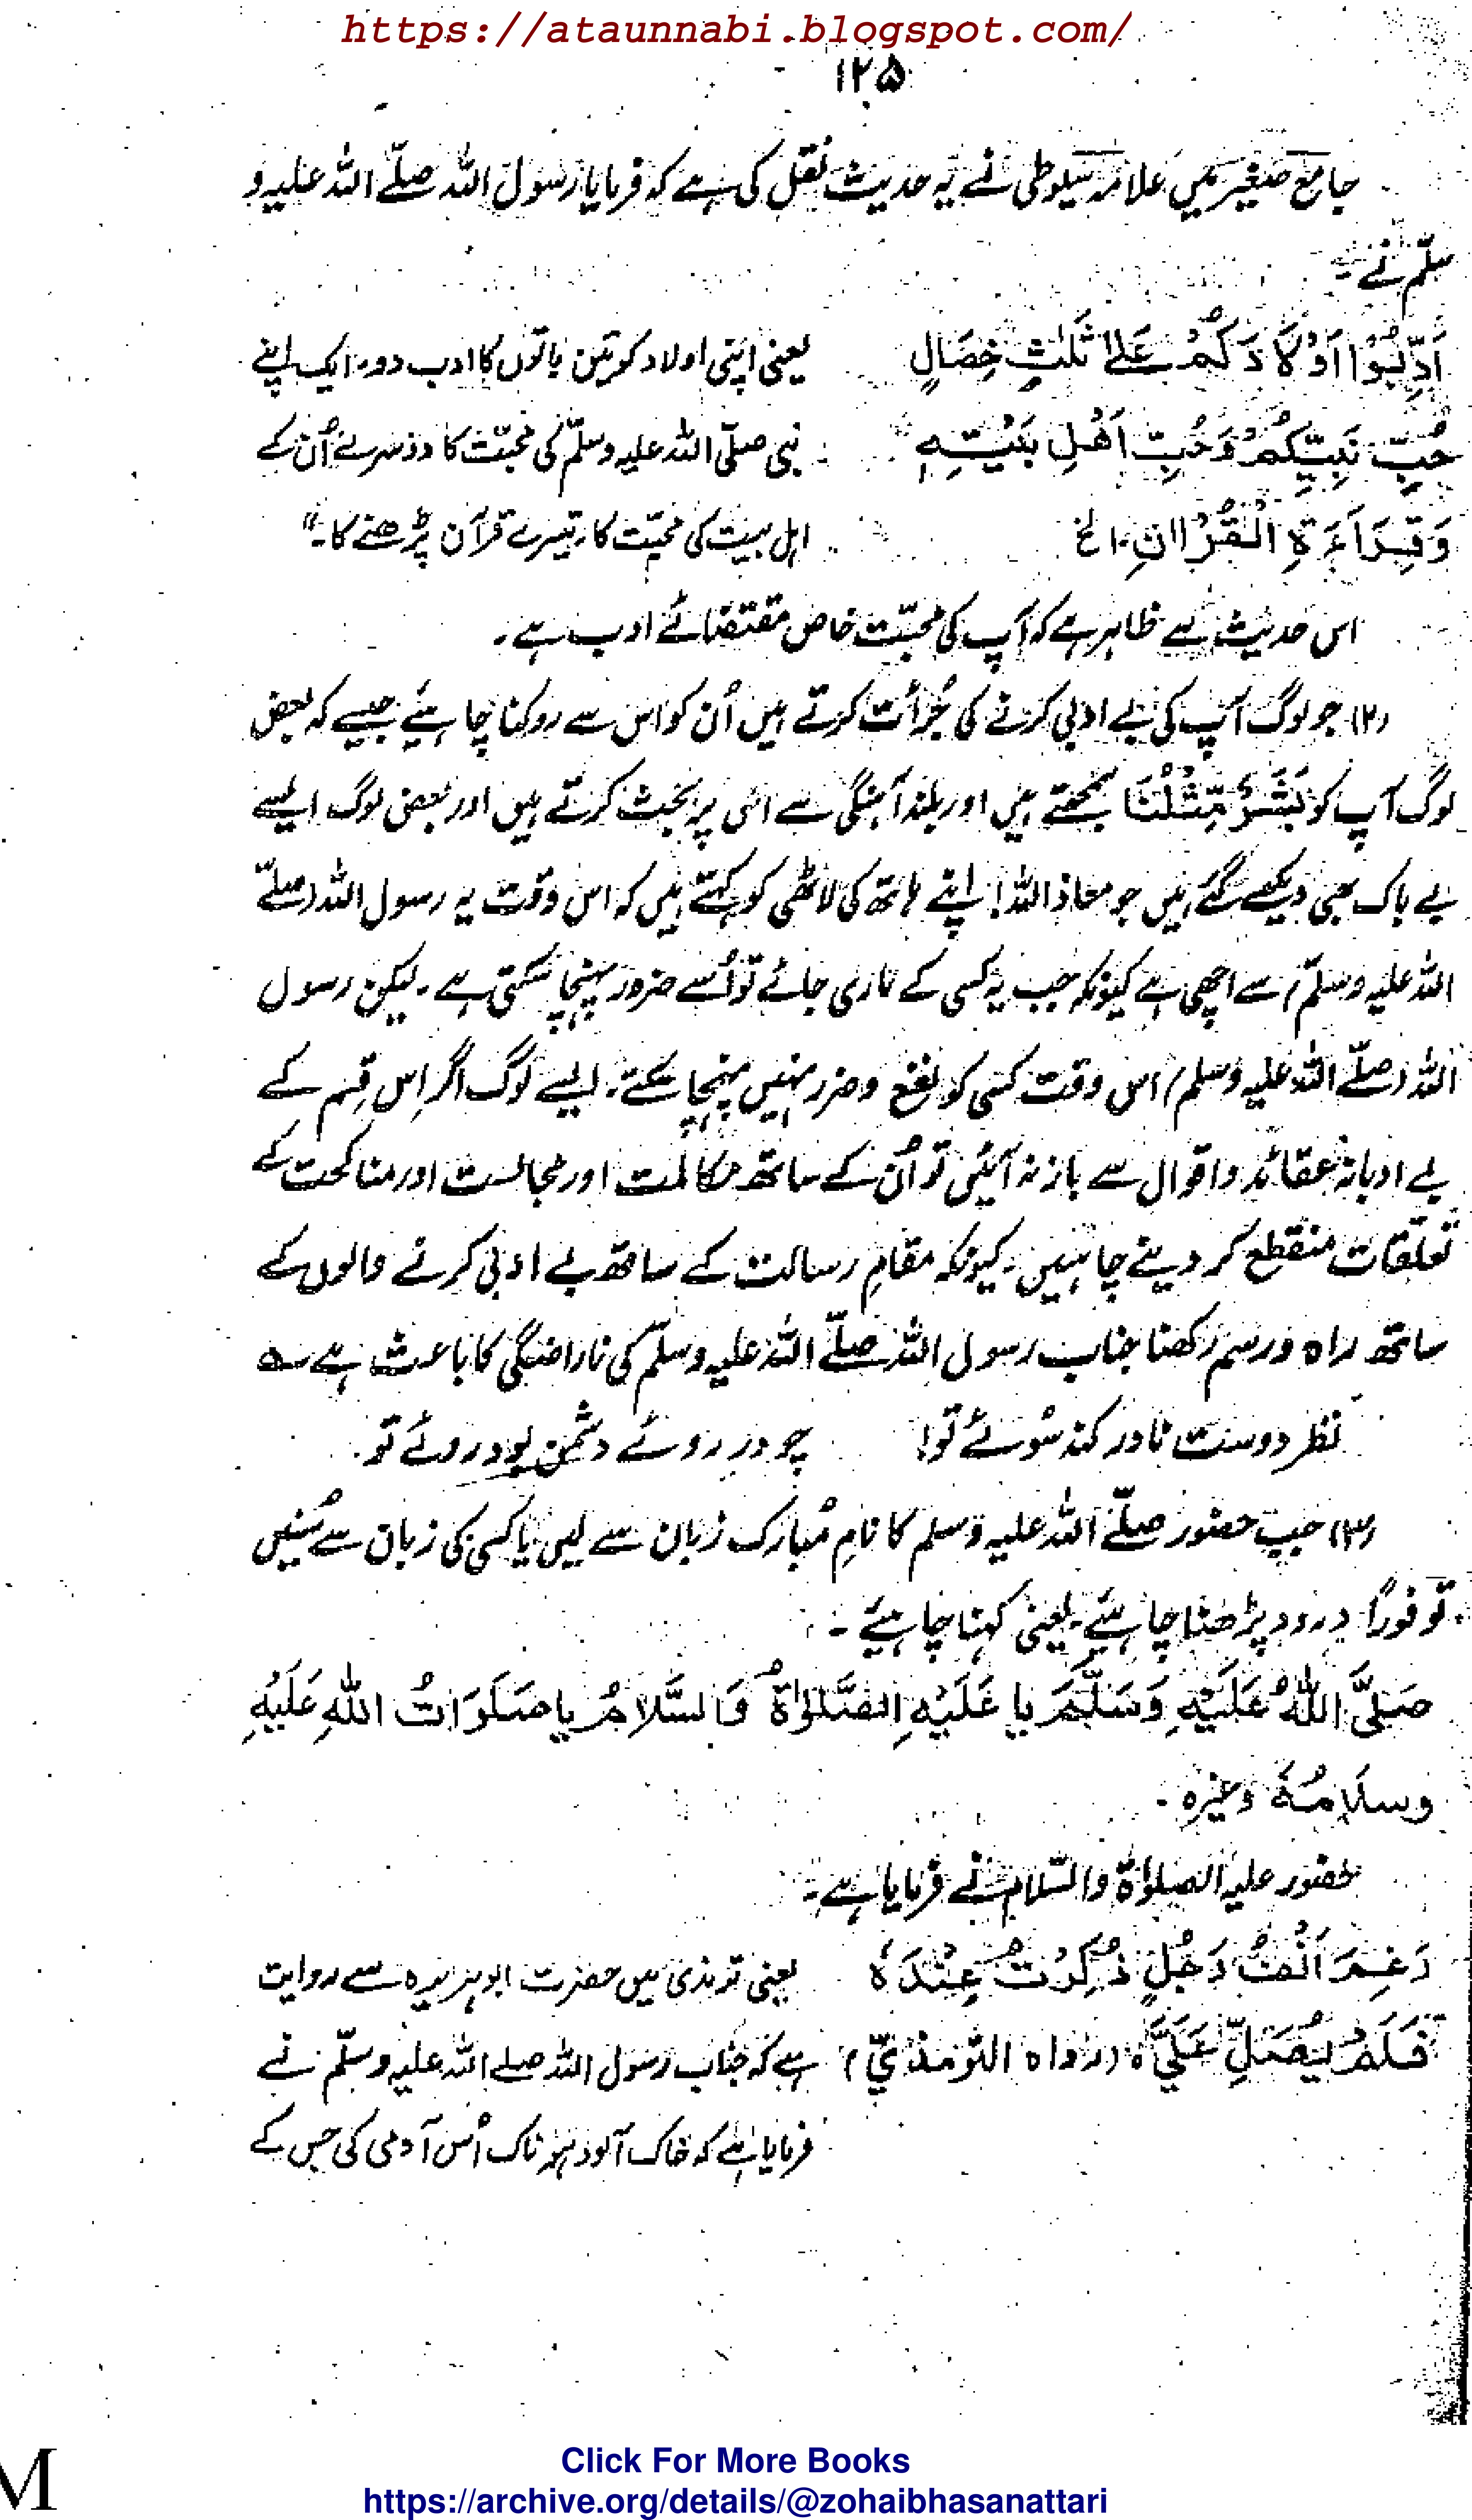 https://ataunnabi.blogspot.com/
۱۲۵
جامع صغیر میں علامہ سیوطی نے یہ حدیث نقل کی ہے کہ فرمایا رسول اللہ صلّے اللہ علیہ و
سلّم نے -
اَدِّبُوْا اَوْلَادَكُمْ عَلٰى ثَلٰثِ خِصَالٍ یعنی اپنی اولاد کو تین باتوں کا ادب دو۔ ایک اپنے
حُبِّ نَبِيِّكُمْ وَحُبِّ اَهْلِ بَيْتِهٖ نبی صلّی اللہ علیہ وسلّم کی محبّت کا دوسرے اُن کے
وَقِرَاءَةِ الْقُرْاٰنِ۔ الخ اہل بیت کی محبّت کا تیسرے قرآن پڑھنے کا۔"
اس حدیث سے ظاہر ہے کہ آپ کی محبّت خاص مقتضائے ادب ہے۔
(۲) جو لوگ آپ کی بے ادبی کرنے کی جُرأت کرتے ہیں اُن کو اس سے روکنا چاہئیے جیسے کہ بعض
لوگ آپ کو بَشَرٌ مِّثْلُنَا سمجھتے ہیں اور بلند آہنگی سے اسی پر بحث کرتے ہیں اور بعض لوگ ایسے
بے باک بھی دیکھے گئے ہیں جو معاذ اللہ! اپنے ہاتھ کی لاٹھی کو کہتے ہیں کہ اس وقت یہ رسول اللہ (صلّے
اللہ علیہ وسلّم) سے اچھی ہے کیونکہ جب یہ کسی کے ماری جائے تو اُسے ضرر پہنچا سکتی ہے۔ لیکن رسول
اللہ (صلّے اللہ علیہ وسلم) اس وقت کسی کو نفع و ضرر نہیں پہنچا سکتے۔ ایسے لوگ اگر اِس قِسم کے
بے ادبانہ عقائد و اقوال سے باز نہ آئیں تو اُن کے ساتھ مکالمت اور مجالست اور مناکحت کے
تعلقات منقطع کر دینے چاہئیں۔ کیونکہ مقامِ رسالت کے ساتھ بے ادبی کرنے والوں کے
ساتھ راہ و رسم رکھنا جناب رسول اللہ صلّے اللہ علیہ وسلّم کی ناراضگی کا باعث ہے ؎
نظر دوست نادر کند سُوئے تو! چو در روئے دشمن بود روئے تو۔
(۳) جب حضور صلّے اللہ علیہ وسلم کا نامِ مُبارک زبان سے لیں یا کسی کی زبان سے سُنیں
تو فوراً درود پڑھنا چاہئیے۔ یعنی کہنا چاہئیے -
صَلَّى اللّٰهُ عَلَيْهِ وَسَلَّمَ يا عَلَيْهِ الصَّلٰوةُ وَالسَّلَامُ يا صَلَوَاتُ اللّٰهِ عَلَيْهِ
وسلامُهٗ وغیرہ -
حضور علیہ الصلوٰۃ والسّلام نے فرمایا ہے۔
رَغِمَ اَنْفُ رَجُلٍ ذُكِرْتُ عِنْدَهٗ یعنی ترمذی میں حضرت ابوہریرہ سے روایت
فَلَمْ يُصَلِّ عَلَيَّ (رواه الترمذيّ) ہے کہ جناب رسول اللہ صلے اللہ علیہ وسلّم نے
فرمایا ہے کہ خاک آلود ہو ناک اُس آدمی کی جس کے
M
Click For More Books
https://archive.org/details/@zohaibhasanattari